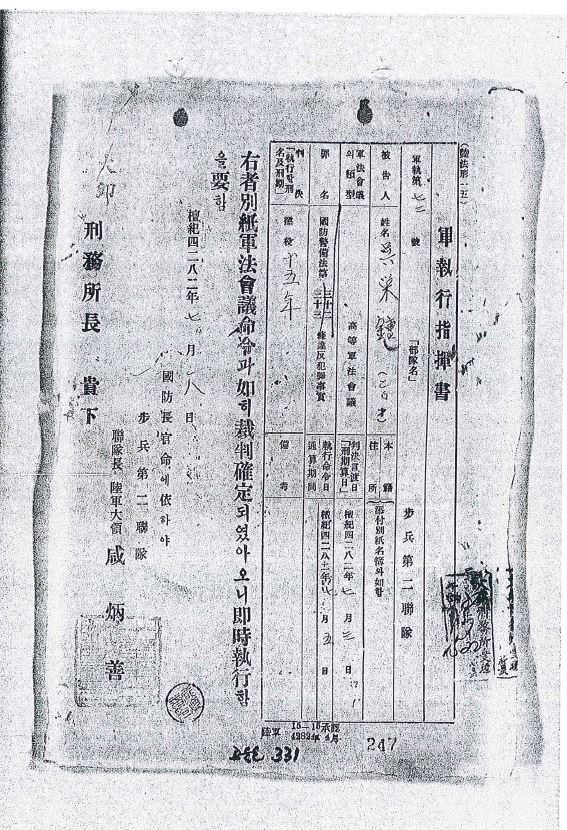 (陸法形一五)
軍執行指揮書
軍執第七二號
「部隊名」
步兵第二聯隊
被告人
姓名
本籍
住所
添付別紙名簿와如함
軍法會議의類型
高等軍法會議
判決言渡日
「刑期算日」
檀紀四二八二年七月三日
罪名
國防警備法第三十二 三十三條違反犯罪事實
執行命令日
通算期間
檀紀四二八二年七月五日
判決
「執行할刑名及刑期」
懲役十五年
備考
右者別紙軍法會議命令과如히裁判確定되였아오니即時執行함
을要함
檀紀四二八二年七月 八日
國防長官命에依하야
步兵第二聯隊
聯隊長 陸軍大領 咸炳善
刑務所長 貴下
陸軍
15—15承認
4282年4月
247
331